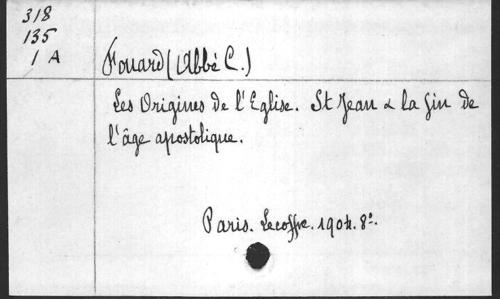 318
135
1 A
Fouard (Abbé C.)
Les Origines de l'Eglise. St Jean & la fin de
l'âge apostolique.
Paris. Lecoffre. 1904. 8º.